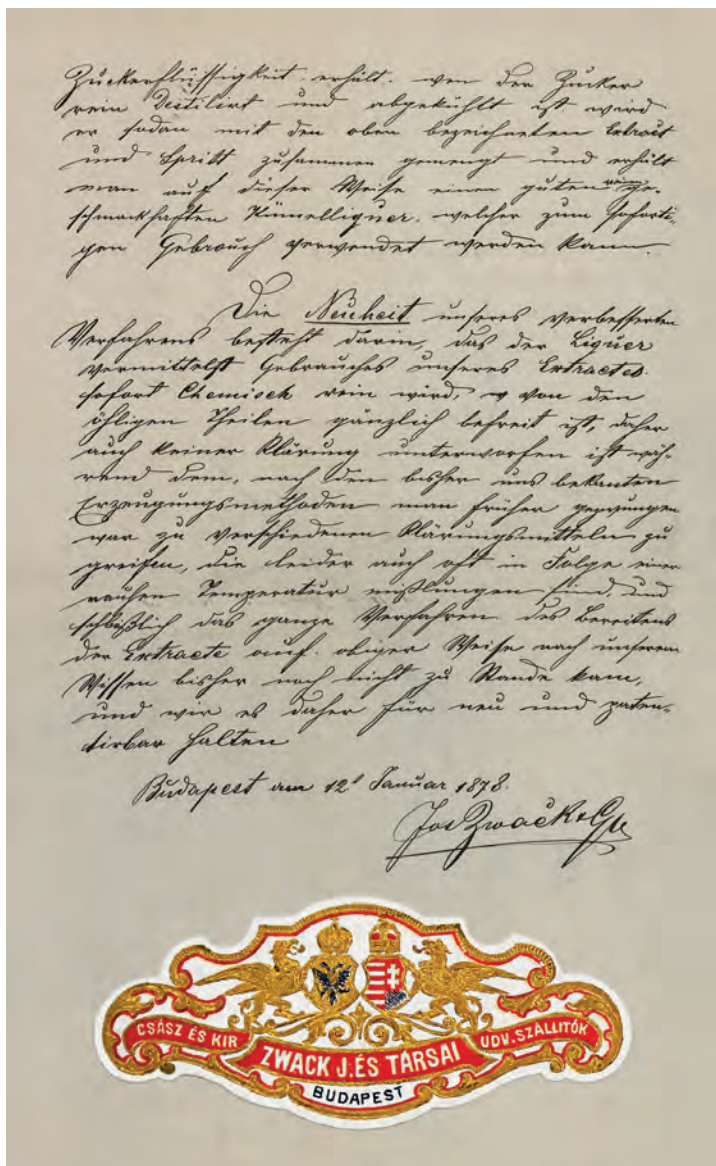 Zuckerflüssigkeit erhält. wen der Zucker
rein Destilirt und abgekühlt ist wird
er sodan mit den oben bezeichneten Extract
und Spritt zusammen gemengt und erhält
man auf dieser Weise einen guten reinen ge-
schmackhaften Kümelliquer. welcher zum soforti-
gen Gebrauch verwendet werden kann.
Die Neuheit unseres verbesserten
Verfahrens besteht darin, das der Liquer
vermittelst Gebrauches unseres Extractes
sofort Chemisch rein wird, von den
öhligen Theilen gänzlich befreit ist, daher
auch keiner Klärung unterworfen ist wäh-
rend dem, nach den bisher uns bekanten
Erzeugungsmethoden man früher gezwungen
war zu verschiedenen Klärungsmitteln zu
greifen, die leider auch oft in Folge einer
rauhen Temperatur mißlungen sind, und
schlüßlich das ganze Verfahren des Bereitens
der Extracte auf obiger Weise nach unserem
Wissen bisher noch nicht zu Stande kam,
und wir es daher für neu und paten-
tirbar halten
Budapest am 12t Januar 1878.
Jos Zwack & Co
CSÁSZ ÉS KIR UDV. SZÁLLITÓK
ZWACK J. ÉS TÁRSAI
BUDAPEST